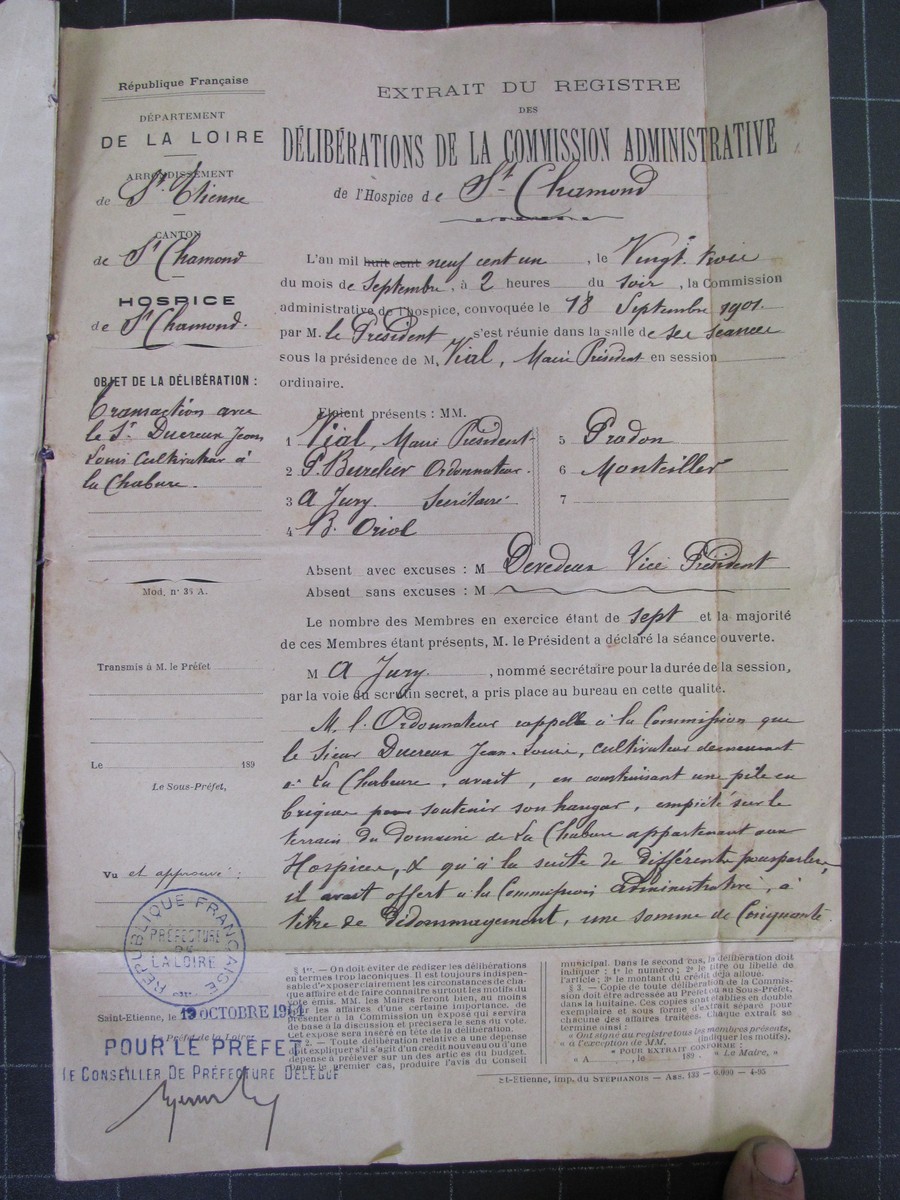 République Française
DÉPARTEMENT
DE LA LOIRE
ARRONDISSEMENT
de St. Etienne
CANTON
de St Chamond
HOSPICE
de St Chamond.
OBJET DE LA DÉLIBÉRATION :
Transaction avec
le Sr. Ducreux Jean
Louis Cultivateur à
la Chabure.
Mod. n° 34 A.
Transmis à M. le Préfet
Le 189
Le Sous-Préfet,
Vu et approuvé :
RÉPUBLIQUE FRANÇAISE
PRÉFECTURE
DE
LA LOIRE
Saint-Etienne, le 19 OCTOBRE 1901
Le Préfet de la Loire,
POUR LE PRÉFET
LE CONSEILLER DE PRÉFECTURE DÉLÉGUÉ
EXTRAIT DU REGISTRE
DES
DÉLIBÉRATIONS DE LA COMMISSION ADMINISTRATIVE
de l'Hospice de St Chamond
L'an mil huit cent neuf cent un, le Vingt trois
du mois de Septembre, à 2 heures du soir, la Commission
administrative de l'hospice, convoquée le 18 Septembre 1901
par M. le Président s'est réunie dans la salle de ses séances
sous la présidence de M. Vial, Maire Président en session
ordinaire.
Etaient présents : MM.
1 Vial, Maire Président
2 P. Burelier Ordonnateur.
3 A Jury Secrétaire
4 B. Oriol
5 Pradon
6 Monteiller
7
Absent avec excuses : M Devedeux Vice Président
Absent sans excuses : M
Le nombre des Membres en exercice étant de sept et la majorité
de ces Membres étant présents, M. le Président a déclaré la séance ouverte.
M A Jury, nommé secrétaire pour la durée de la session,
par la voie du scrutin secret, a pris place au bureau en cette qualité.
M. l'Ordonnateur rappelle à la Commission que
le Sieur Ducreux Jean-Louis, cultivateur demeurant
à La Chabeure, avait, en construisant une pile en
brique pour soutenir son hangar, empiété sur le
terrain du domaine de La Chabure appartenant aux
Hospices, & qu'à la suite de différents pourparlers,
il avait offert à la Commission Administrative, à
titre de Dédommagement, une somme de Cinquante
§ 1er. — On doit éviter de rédiger les délibérations
en termes trop laconiques. Il est toujours indispen-
sable d'exposer clairement les circonstances de cha-
que affaire et de faire connaître surtout les motifs du
vote émis. MM. les Maires feront bien, au moins
pour les affaires d'une certaine importance, de
présenter à la Commission un exposé qui servira
de base à la discussion et précisera le sens du vote.
Cet exposé sera inséré en tête de la délibération.
§ 2. — Toute délibération relative à une dépense
doit expliquer s'il s'agit d'un crédit nouveau ou d'une
dépense à prélever sur un des articles du budget.
Dans le premier cas, produire l'avis du Conseil
municipal. Dans le second cas, la délibération doit
indiquer : 1° le numéro ; 2° le titre ou libellé de
l'article ; 3° le montant du crédit déjà alloué.
§ 3. — Copie de toute délibération de la Commis-
sion doit être adressée au Préfet ou au Sous-Préfet,
dans la huitaine. Ces copies sont établies en double
exemplaire et sous forme d'extrait séparé pour
chacune des affaires traitées. Chaque extrait se
termine ainsi :
« Ont signé au registre tous les membres présents,
« à l'exception de MM. (indiquer les motifs).
« POUR EXTRAIT CONFORME :
« A , le 189 . « Le Maire, »
St-Etienne, imp. du STÉPHANOIS — Ass. 133 — 6.000 — 4-95